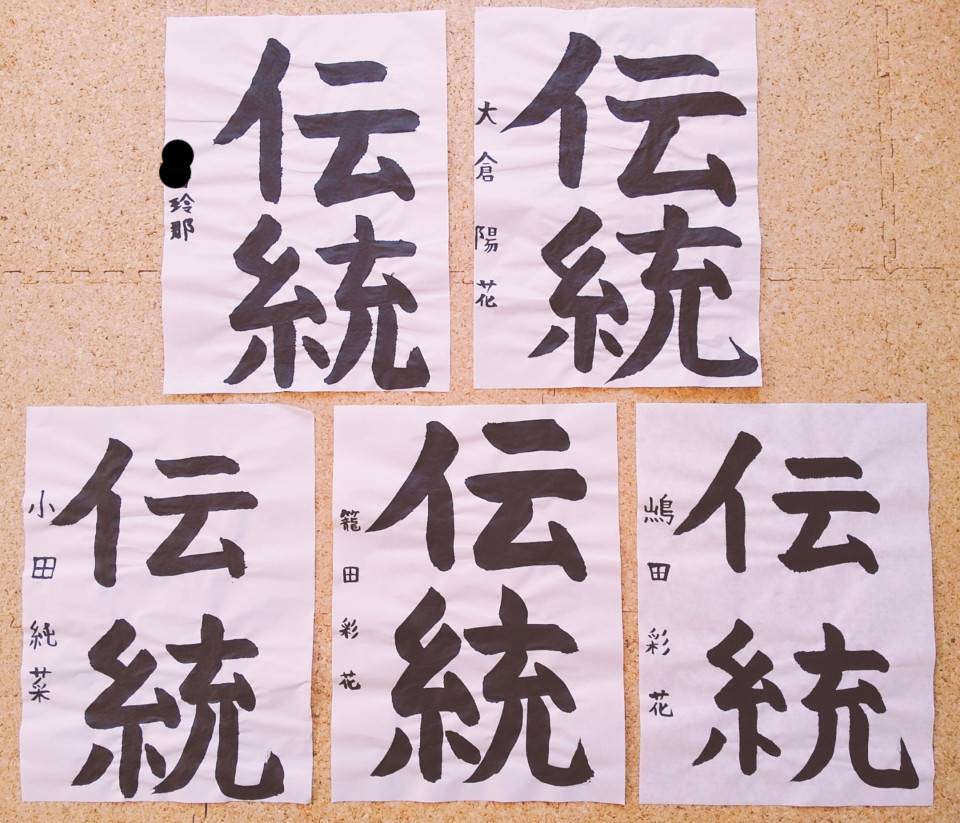 伝統
玲那
伝統
大倉陽花
伝統
小田純菜
伝統
籠田彩花
伝統
嶋田彩花